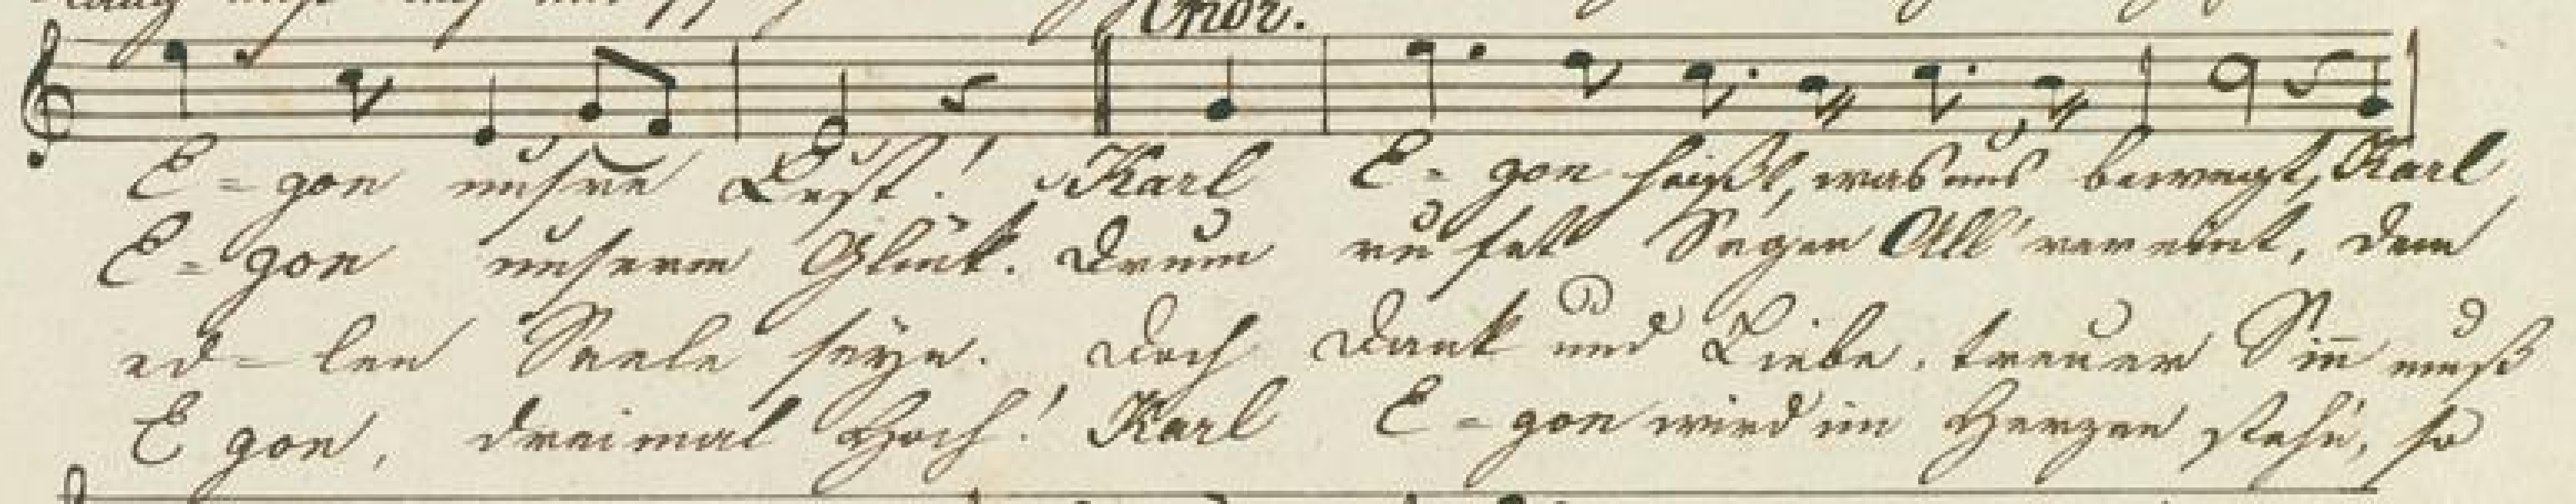 Chor.
E = gon unsre Lust! Karl E = gon heißt, was uns bewegt, Karl
E = gon unserm Glück. Drum rufet Segen All' vereint, dem
ed = len Seele seyn. Doch Dank und Liebe, treuer Siñ muß
E gon, dreimal Hoch! Karl E = gon wird im Herzen stehn, so